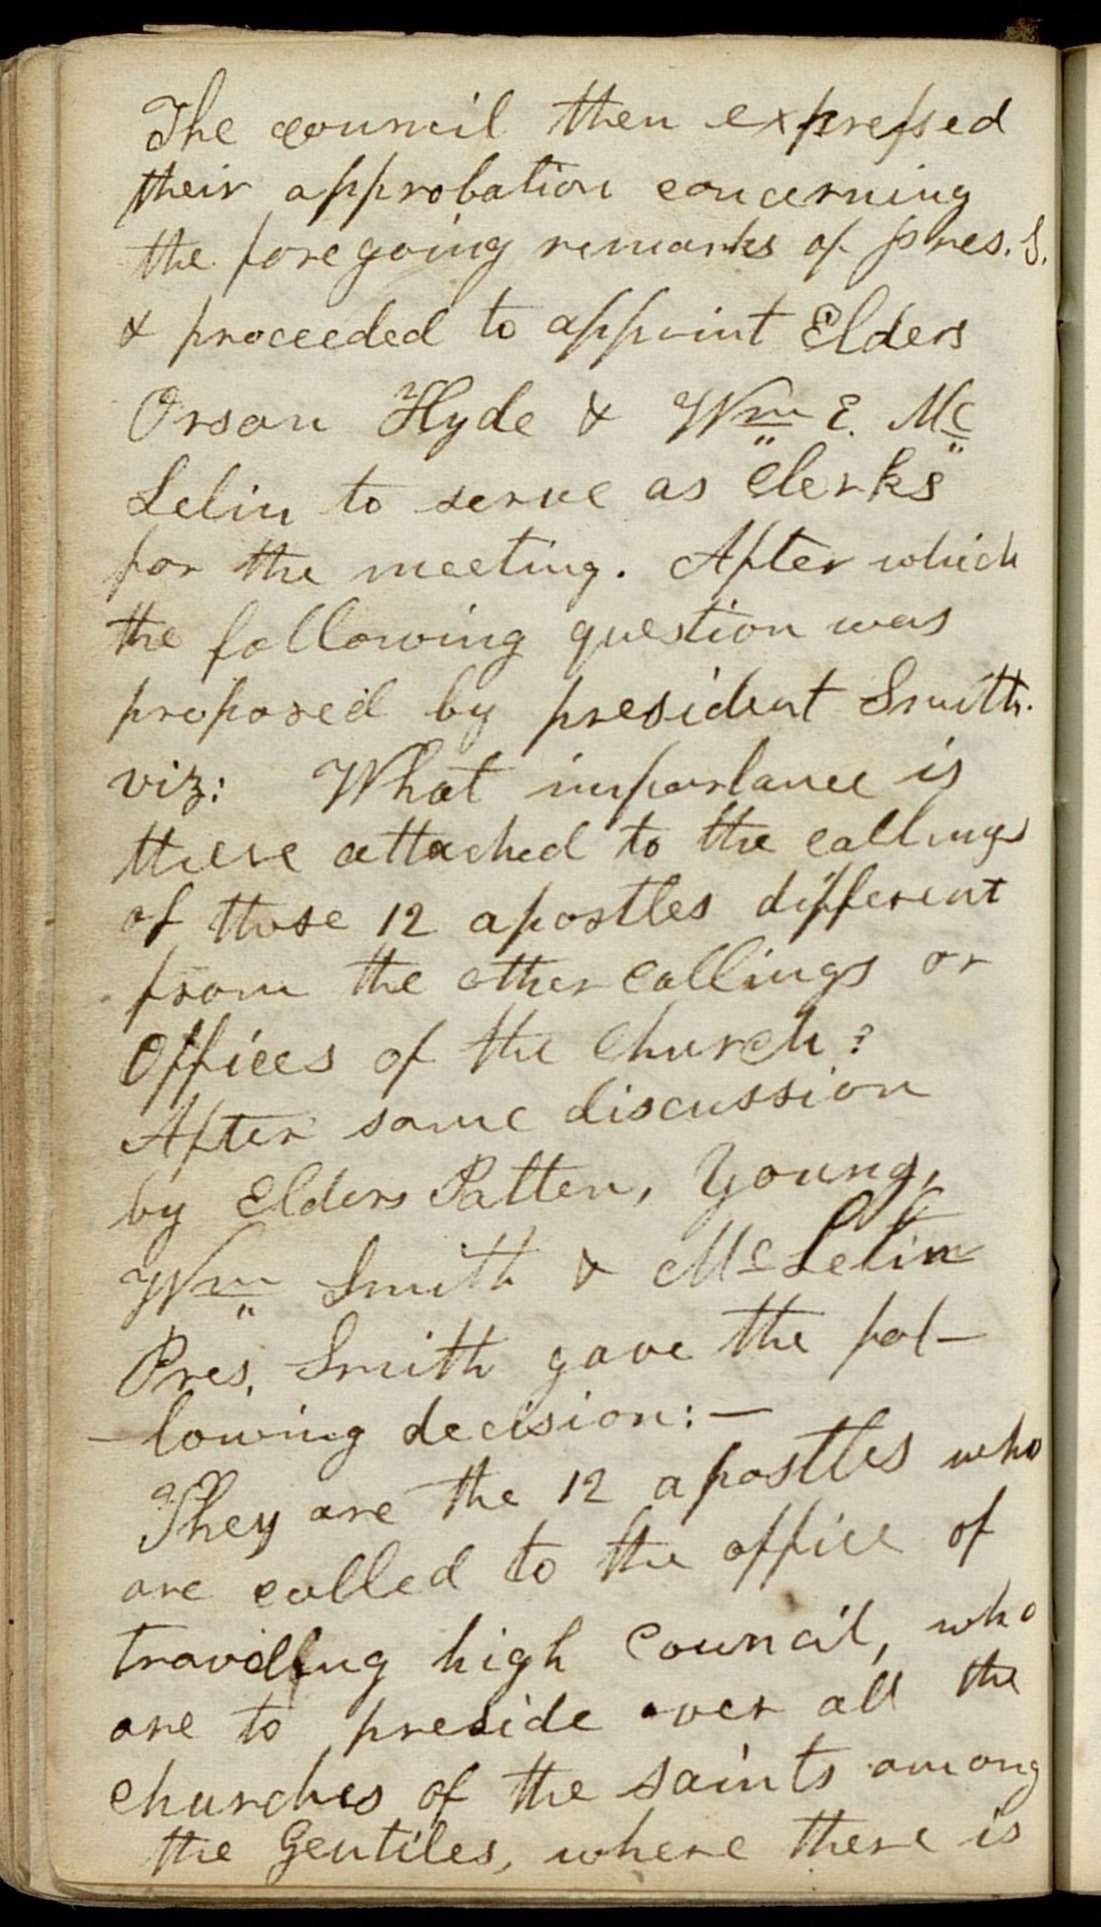 The council then expressed
their approbation concerning
the foregoing remarks of pres. S.
& proceeded to appoint Elders
Orson Hyde & Wm E. Mc
Lelin to serve as "Clerks"
for the meeting. After which
the following question was
proposed by president Smith.
viz: What importance is
there attached to the callings
of those 12 apostles different
from the other callings or
Offices of the church?
After some discussion
by Elders Patten, Young,
Wm Smith & McLelin
Pres. Smith gave the fol-
-lowing decision:—
They are the 12 apostles who
are called to the office of
traveling high council, who
are to preside over all the
churches of the saints among
the Gentiles, where there is